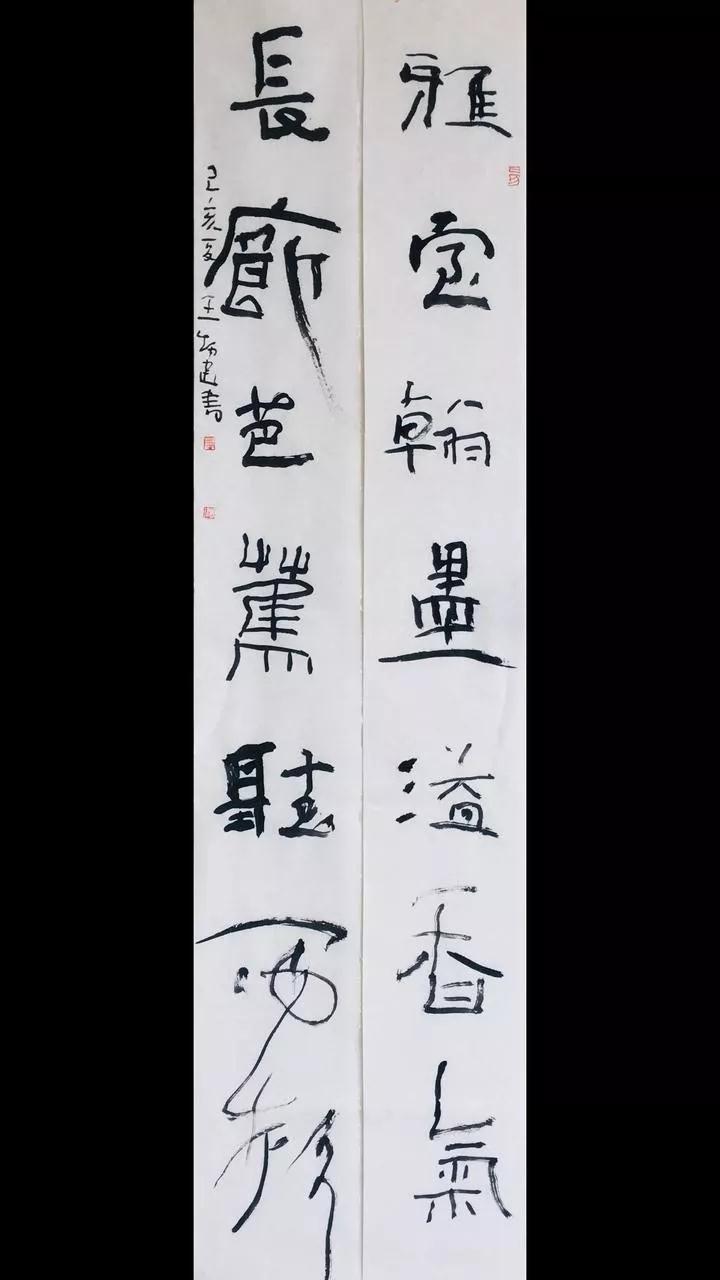 雅室翰墨溢香氣
長廊芭蕉聽雨聲
己亥夏王
書